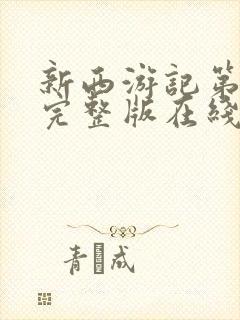 新西游記第
完整版在綫
青 成